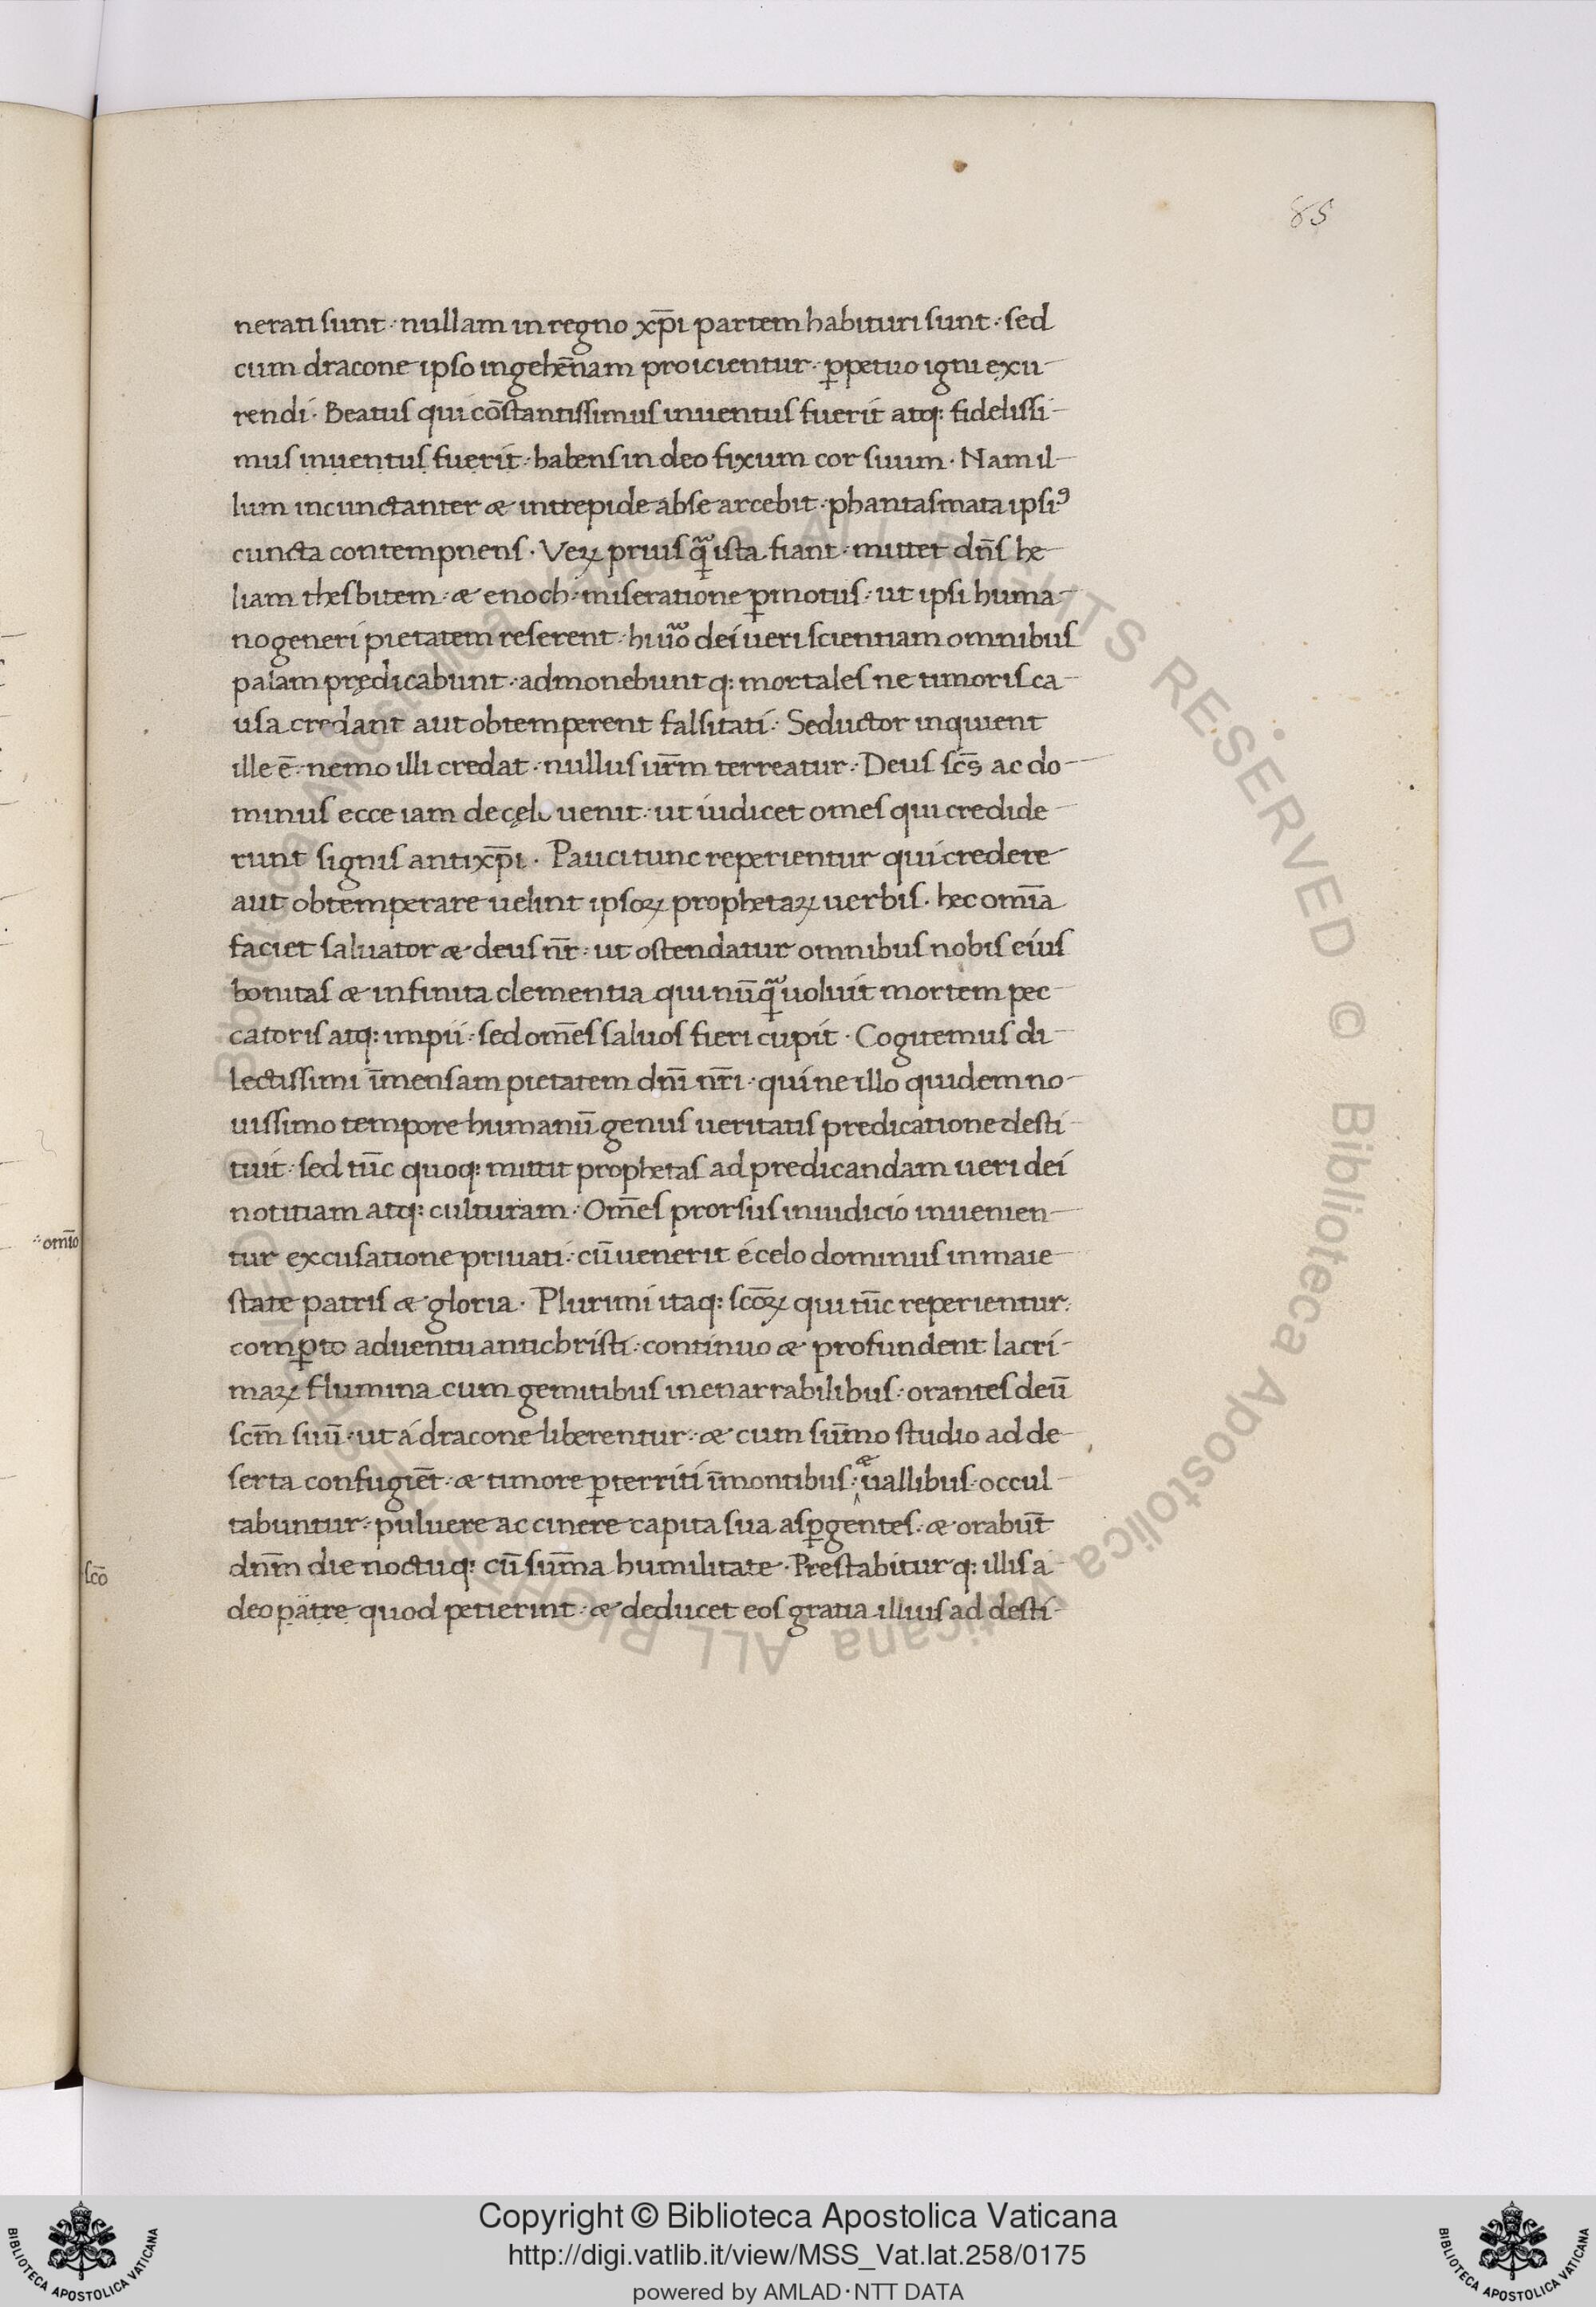 85
nerati sunt · nullam in regno xp̄i partem habituri sunt · sed
cum dracone ipso in gehēnam proicientur · ꝑpetuo igni exu-
rendi · Beatus qui cōstantissimus inuentus fuerit atq: fidelissi-
mus inuentus fuerit · habens in deo fixum cor suum · Nam il-
lum incunctanter & intrepide ab se arcebit · phantasmata ipsiꝰ
cuncta contempnens · Veꝝ prius qͣ̃ ista fiant · mittet dn̄s he-
liam thesbitem · & enoch · miseratione ꝑmotus · ut ipsi huma-
no generi pietatem reserent · hi u͛o dei ueri scientiam omnibus
palam prędicabunt · admonebuntq: mortales ne timoris ca-
usa credant aut obtemperent falsitati · Seductor inquient
ille ē · nemo illi credat · nullus ur̄m terreatur · Deus sc̄s ac do-
minus ecce iam de cęlo uenit · ut iudicet omes qui credide-
runt signis antixp̄i · Pauci tunc reperientur qui credere
aut obtemperare uelint ipsoꝝ prophetaꝝ uerbis · hec omīa
faciet saluator & deus nr̄ · ut ostendatur omnibus nobis eius
bonitas & infinita clementia qui nūqͣ̃ uoluit mortem pec-
catoris atq: impii · sed om̄es saluos fieri cupit · Cogitemus di-
lectissimi īmensam pietatem dn̄i nr̄i · qui ne illo quidem no-
uissimo tempore humanū genus ueritatis predicatione desti-
tuit · sed tūc quoq: mittit prophetas ad predicandam ueri dei
notitiam atq: culturam · Om̄es prorsus in iudicio inuenien-
tur excusatione priuati · cū uenerit é celo dominus in maie-
state patris & gloria · Plurimi itaq: sc̄oꝝ qui tūc reperientur ·
comꝑto aduentu antichristi · continuo & profundent lacri-
maꝝ flumina cum gemitibus inenarrabilibus · orantes deū
sc̄m suū · ut á dracone liberentur · & cum sūmo studio ad de-
serta confugiēt · & timore ꝑterriti ī montibus · & uallibus · occul-
tabuntur · puluere ac cinere capita sua asꝑgentes · & orabūt
dn̄m die noctuq: cū sūma humilitate · Prestabiturq: illis a
deo patre quod petierint · & deducet eos gratia illius ad desti-
omīo
sc̄o
Copyright © Biblioteca Apostolica Vaticana
http://digi.vatlib.it/view/MSS_Vat.lat.258/0175
powered by AMLAD·NTT DATA
BIBLIOTECA APOSTOLICA VATICANA
BIBLIOTECA APOSTOLICA VATICANA
© Biblioteca Apostolica Vaticana ALL RIGHTS RESERVED © Biblioteca Apostolica Vaticana ALL RIGHTS RESERVED